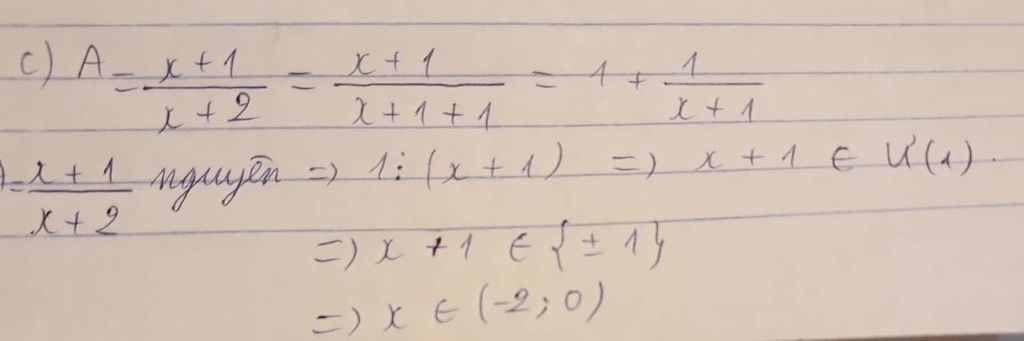 c) A = \frac{x+1}{x+2} = \frac{x+1}{x+1+1} = 1 + \frac{1}{x+1}
A = \frac{x+1}{x+2} nguyên => 1 ⋮ (x+1) => x+1 ∈ Ư(1).
=> x + 1 ∈ {± 1}
=> x ∈ (-2; 0)